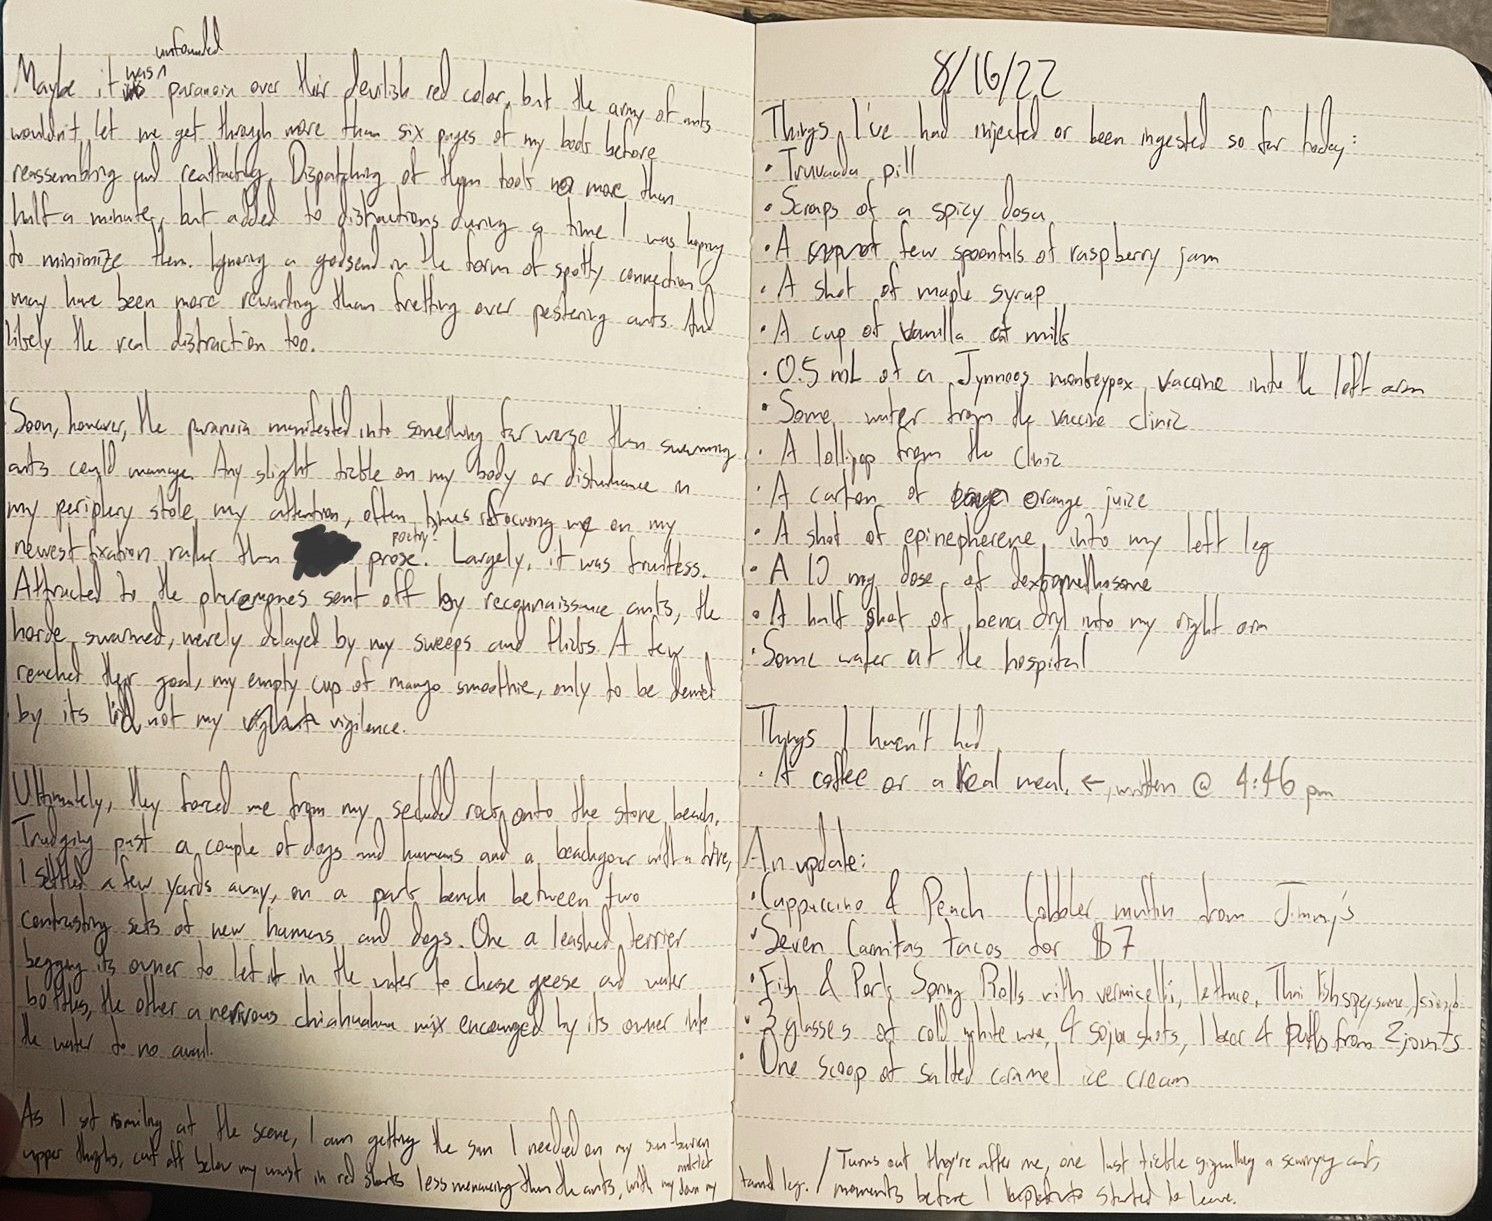 unfounded
Maybe it was paranoia over their devilish red color, but the army of ants
wouldn't let me get through more than six pages of my book before
reassembling and reattacking. Dispatching of them took no more than
half a minute, but added to distractions during a time I was hoping
to minimize them. Ignoring a godsend in the form of spotty connection
may have been more rewarding than fretting over pestering ants. And
likely the real distraction too.
Soon, however, the paranoia manifested into something far worse than swarming
ants could manage. Any slight tickle on my body or disturbance in
my periphery stole my attention, often times refocusing me on my
poetry?
newest fixation rather than prose. Largely, it was fruitless.
Attracted to the pheremones sent off by reconnaissance ants, the
horde swarmed, merely delayed by my sweeps and flicks. A few
reached their goal, my empty cup of mango smoothie, only to be denied
by its lid not my vigilance.
Ultimately, they forced me from my secluded rock onto the stone beach.
Trudging past a couple of dogs and humans and a beachgoer with a
I settled a few yards away, on a park bench between two
contrasting sets of new humans and dogs. One a leashed terrier
begging its owner to let it in the water to chase geese and water
bottles, the other a nervous chiahuahua mix encouraged by its owner into
the water to no avail.
As I sat smiling at the scene, I am getting the sun I needed on my sun-barren
upper thighs, cut off below my waist in red shorts less menacing than the ants, with my anklet down my
8/16/22
Things I've had injected or been ingested so far today:
• Truvada pill
• Scraps of a spicy dosa
• A few spoonfuls of raspberry jam
• A shot of maple syrup
• A cup of vanilla oat milk
• 0.5 mL of a Jynneos monkeypox vaccine into the left arm
• Some water from the vaccine clinic
• A lollipop from the clinic
• A carton of orange juice
• A shot of epinepherene into my left leg
• A 10 mg dose of dexamethasone
• A half shot of benadryl into my right arm
• Some water at the hospital
Things I haven't had
• A coffee or a real meal. ← written @ 4:46 pm
An update:
• Cappuccino & Peach Cobbler muffin from Jimmy's
• Seven Carnitas tacos for $7
• Fish & Pork Spring Rolls with vermicelli, lettuce, Thai
• 3 glasses of cold white wine, 4 soju shots, 1 beer 4 puffs from 2 joints
• One scoop of salted caramel ice cream
tanned leg. / Turns out they're after me, one last tickle signalling a scurrying ant,
moments before I started to leave.